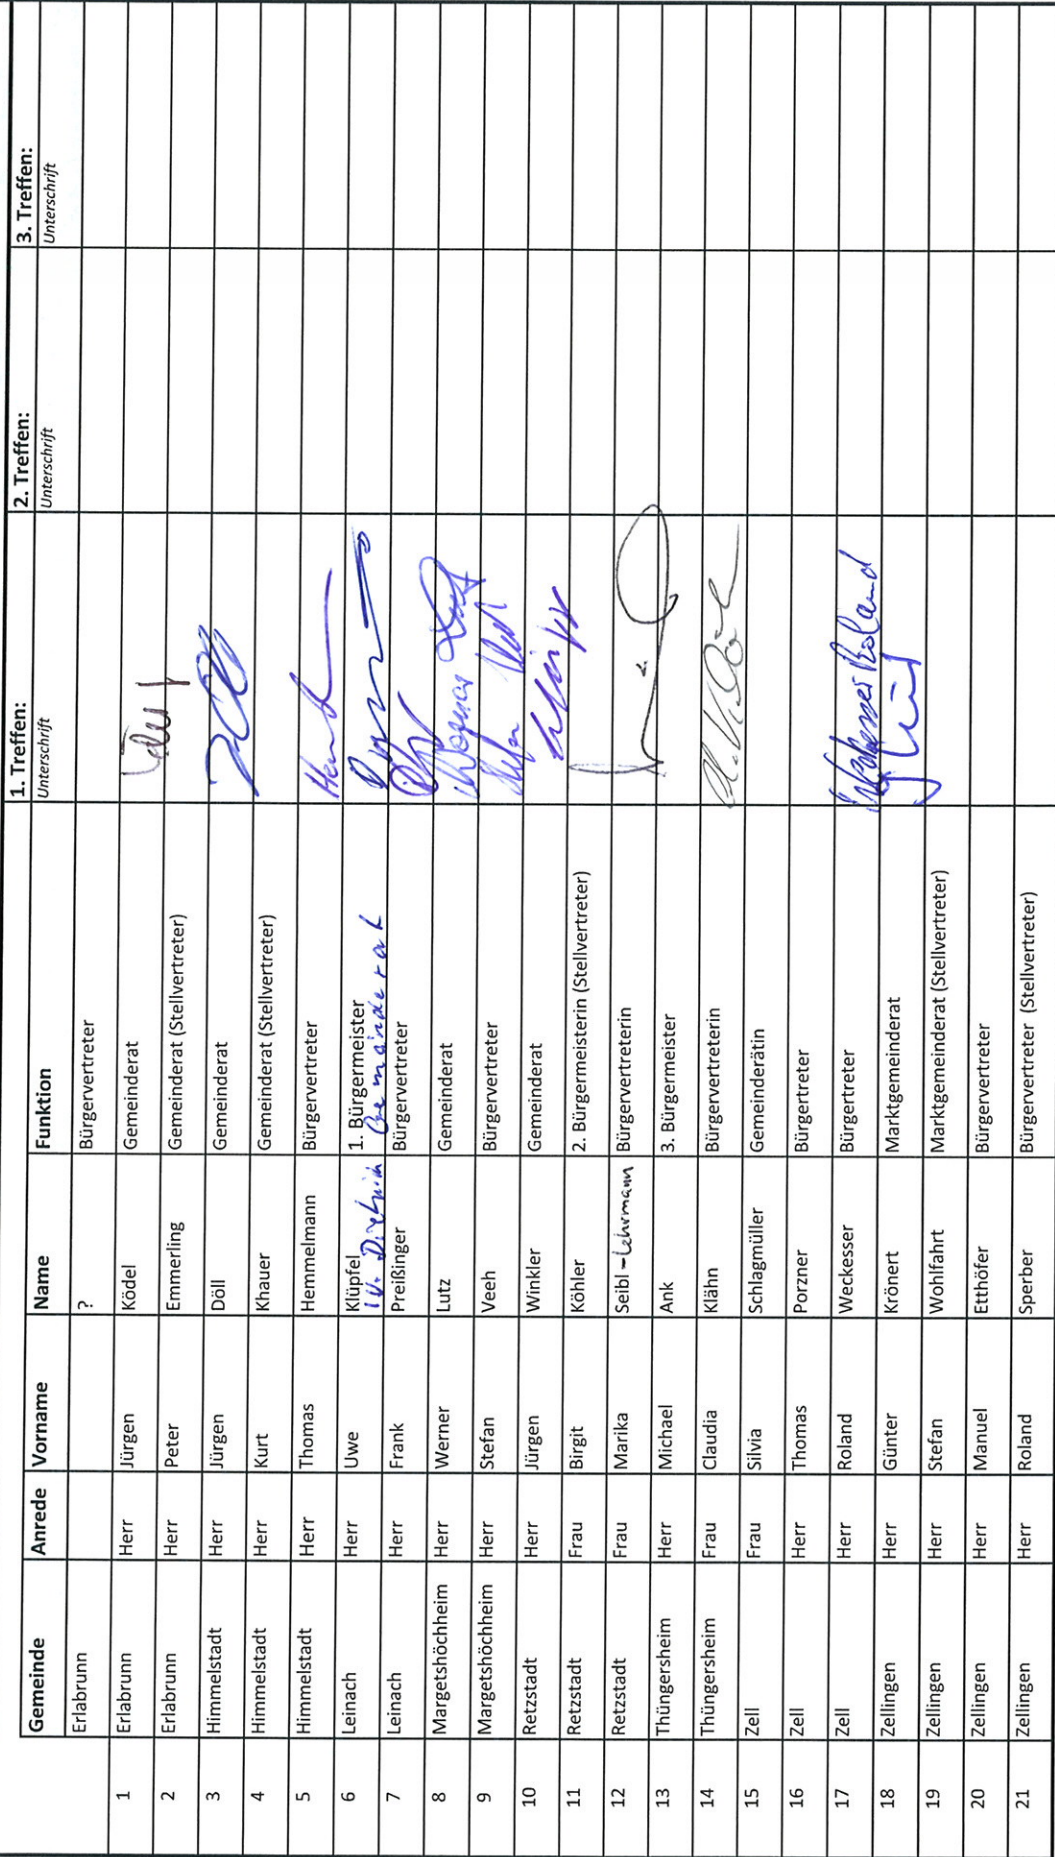 Gemeinde Anrede Vorname Name Funktion 1. Treffen: 2. Treffen: 3. Treffen:
Unterschrift Unterschrift Unterschrift
Erlabrunn ? Bürgervertreter
1 Erlabrunn Herr Jürgen Ködel Gemeinderat
2 Erlabrunn Herr Peter Emmerling Gemeinderat (Stellvertreter)
3 Himmelstadt Herr Jürgen Döll Gemeinderat
4 Himmelstadt Herr Kurt Khauer Gemeinderat (Stellvertreter)
5 Himmelstadt Herr Thomas Hemmelmann Bürgervertreter
6 Leinach Herr Uwe Klüpfel 1. Bürgermeister
i.V. Dietrich Gemeinderat
7 Leinach Herr Frank Preißinger Bürgervertreter
8 Margetshöchheim Herr Werner Lutz Gemeinderat
9 Margetshöchheim Herr Stefan Veeh Bürgervertreter
10 Retzstadt Herr Jürgen Winkler Gemeinderat
11 Retzstadt Frau Birgit Köhler 2. Bürgermeisterin (Stellvertreter)
12 Retzstadt Frau Marika Seibl - Lehrmann Bürgervertreterin
13 Thüngersheim Herr Michael Ank 3. Bürgermeister
14 Thüngersheim Frau Claudia Klähn Bürgervertreterin
15 Zell Frau Silvia Schlagmüller Gemeinderätin
16 Zell Herr Thomas Porzner Bürgertreter
17 Zell Herr Roland Weckesser Bürgertreter Weckesser Roland
18 Zellingen Herr Günter Krönert Marktgemeinderat
19 Zellingen Herr Stefan Wohlfahrt Marktgemeinderat (Stellvertreter)
20 Zellingen Herr Manuel Etthöfer Bürgervertreter
21 Zellingen Herr Roland Sperber Bürgervertreter (Stellvertreter)